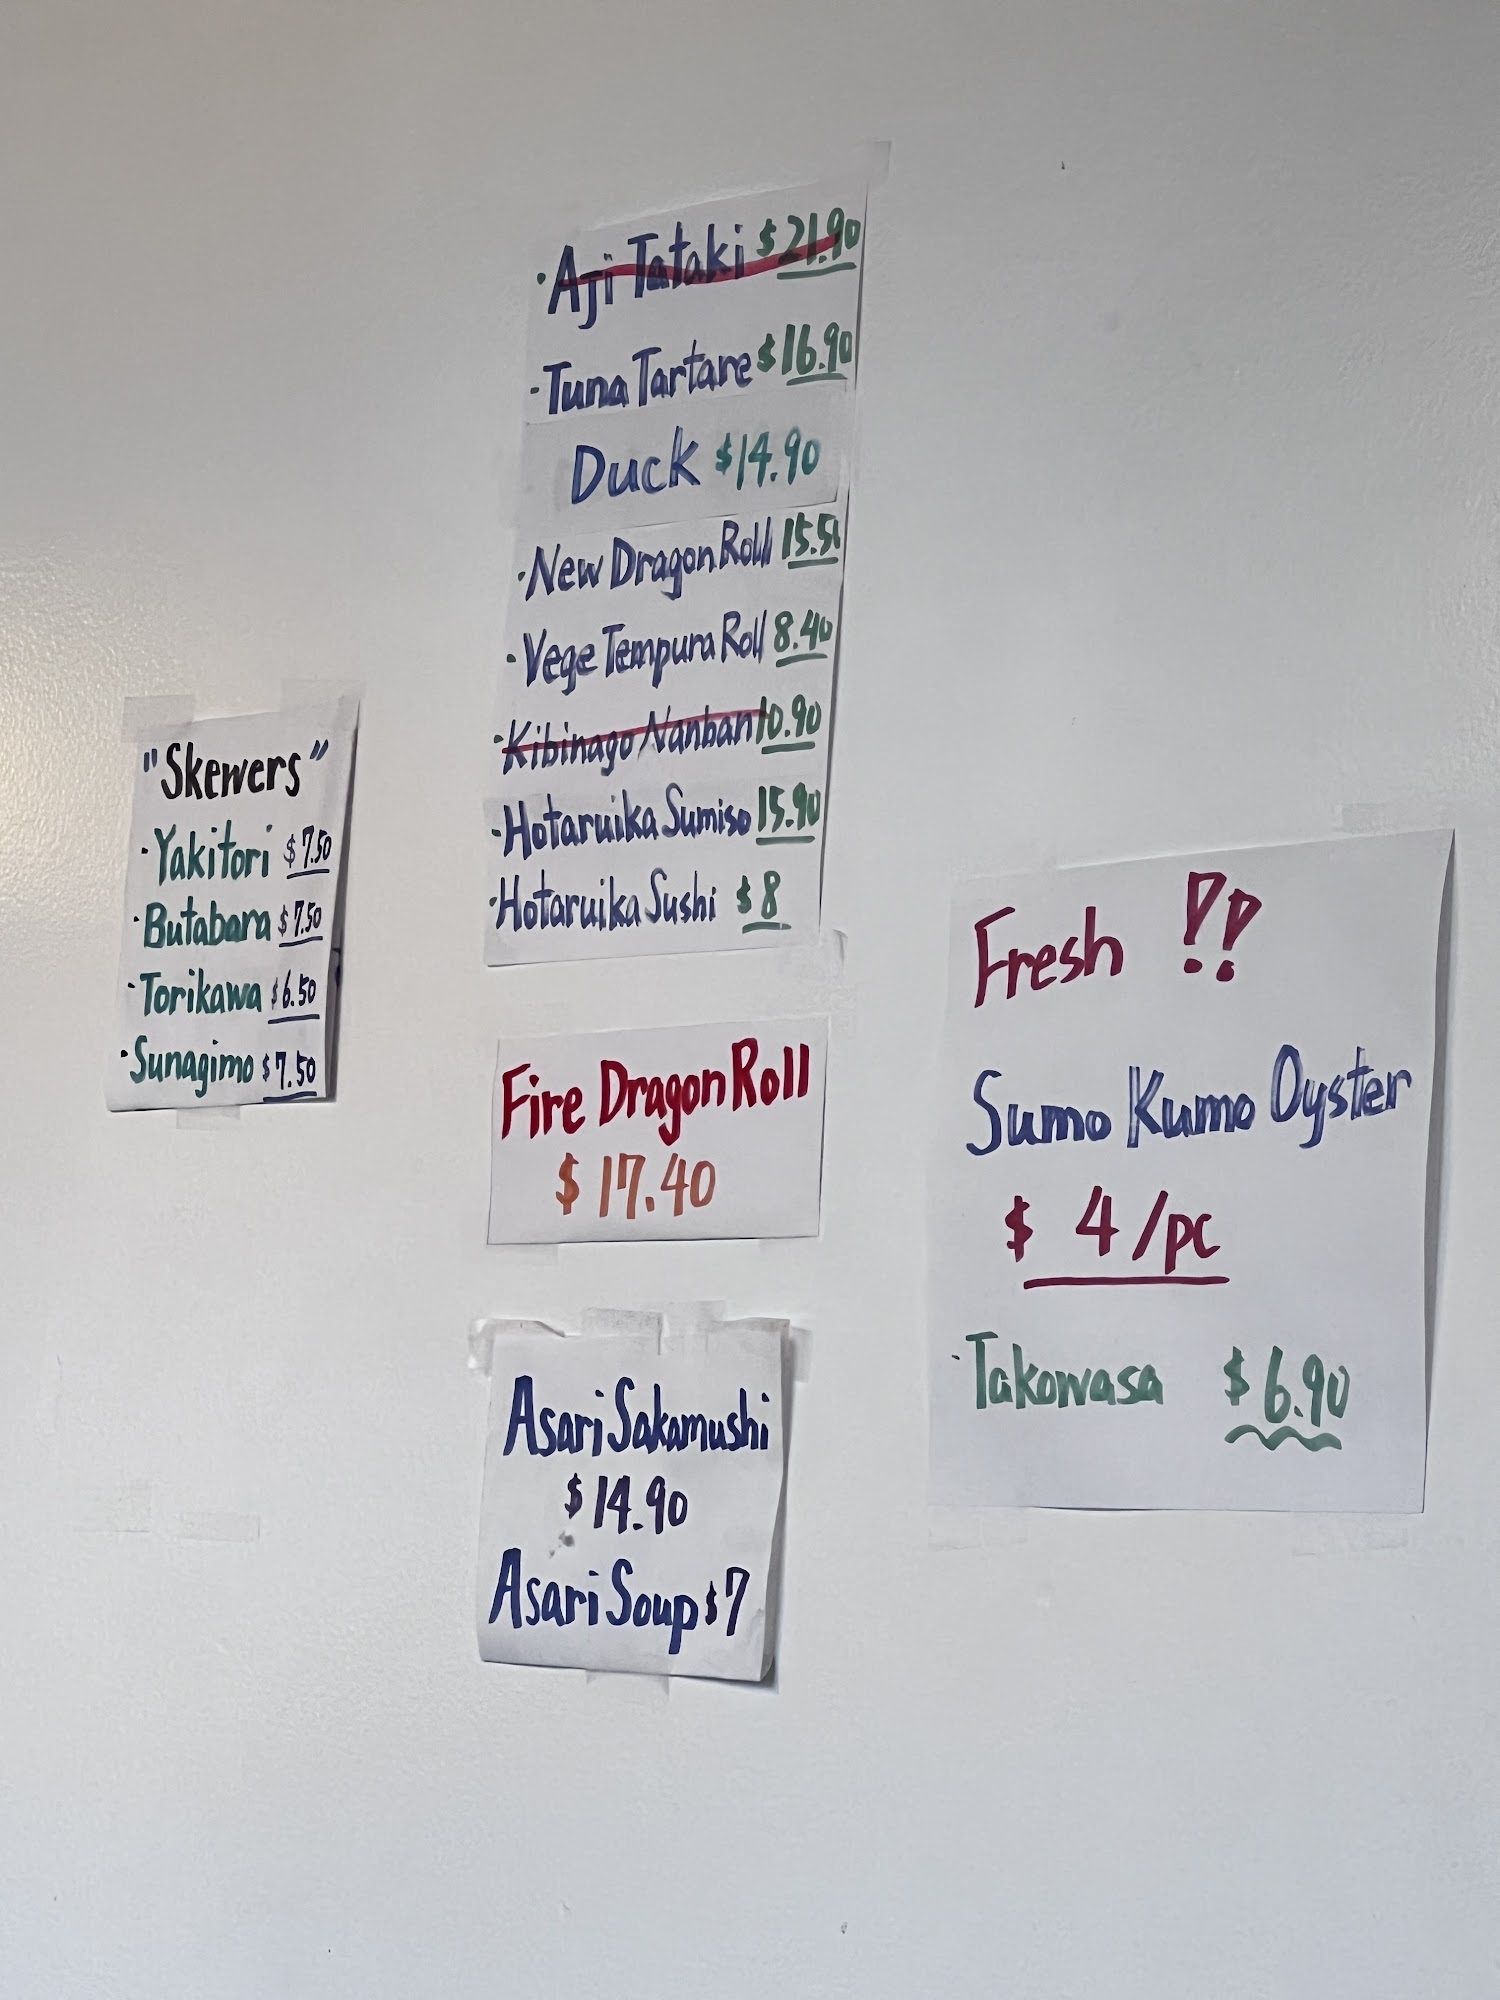 "Skewers"
· Yakitori $7.50
· Butabara $7.50
· Torikawa $6.50
· Sunagimo $7.50
· Aji Tataki $21.90
· Tuna Tartare $16.90
Duck $14.90
· New Dragon Roll 15.50
· Vege Tempura Roll 8.40
· Kibinago Nanban 10.90
· Hotaruika Sumiso 15.90
· Hotaruika Sushi $8
Fire Dragon Roll
$17.40
Asari Sakamushi
$14.90
Asari Soup $7
Fresh !!
Sumo Kumo Oyster
$4/pc
· Takowasa $6.90